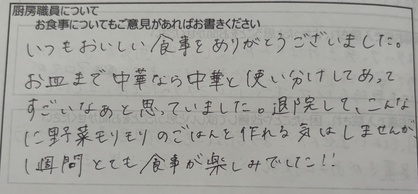 厨房職員について
お食事についてもご意見があればお書きください
いつもおいしい食事をありがとうございました。
お皿まで中華なら中華と使い分けしてあって
すごいなあと思っていました。退院して、こんな
に野菜モリモリのごはんを作れる気はしませんが
1週間とても食事が楽しみでした!!